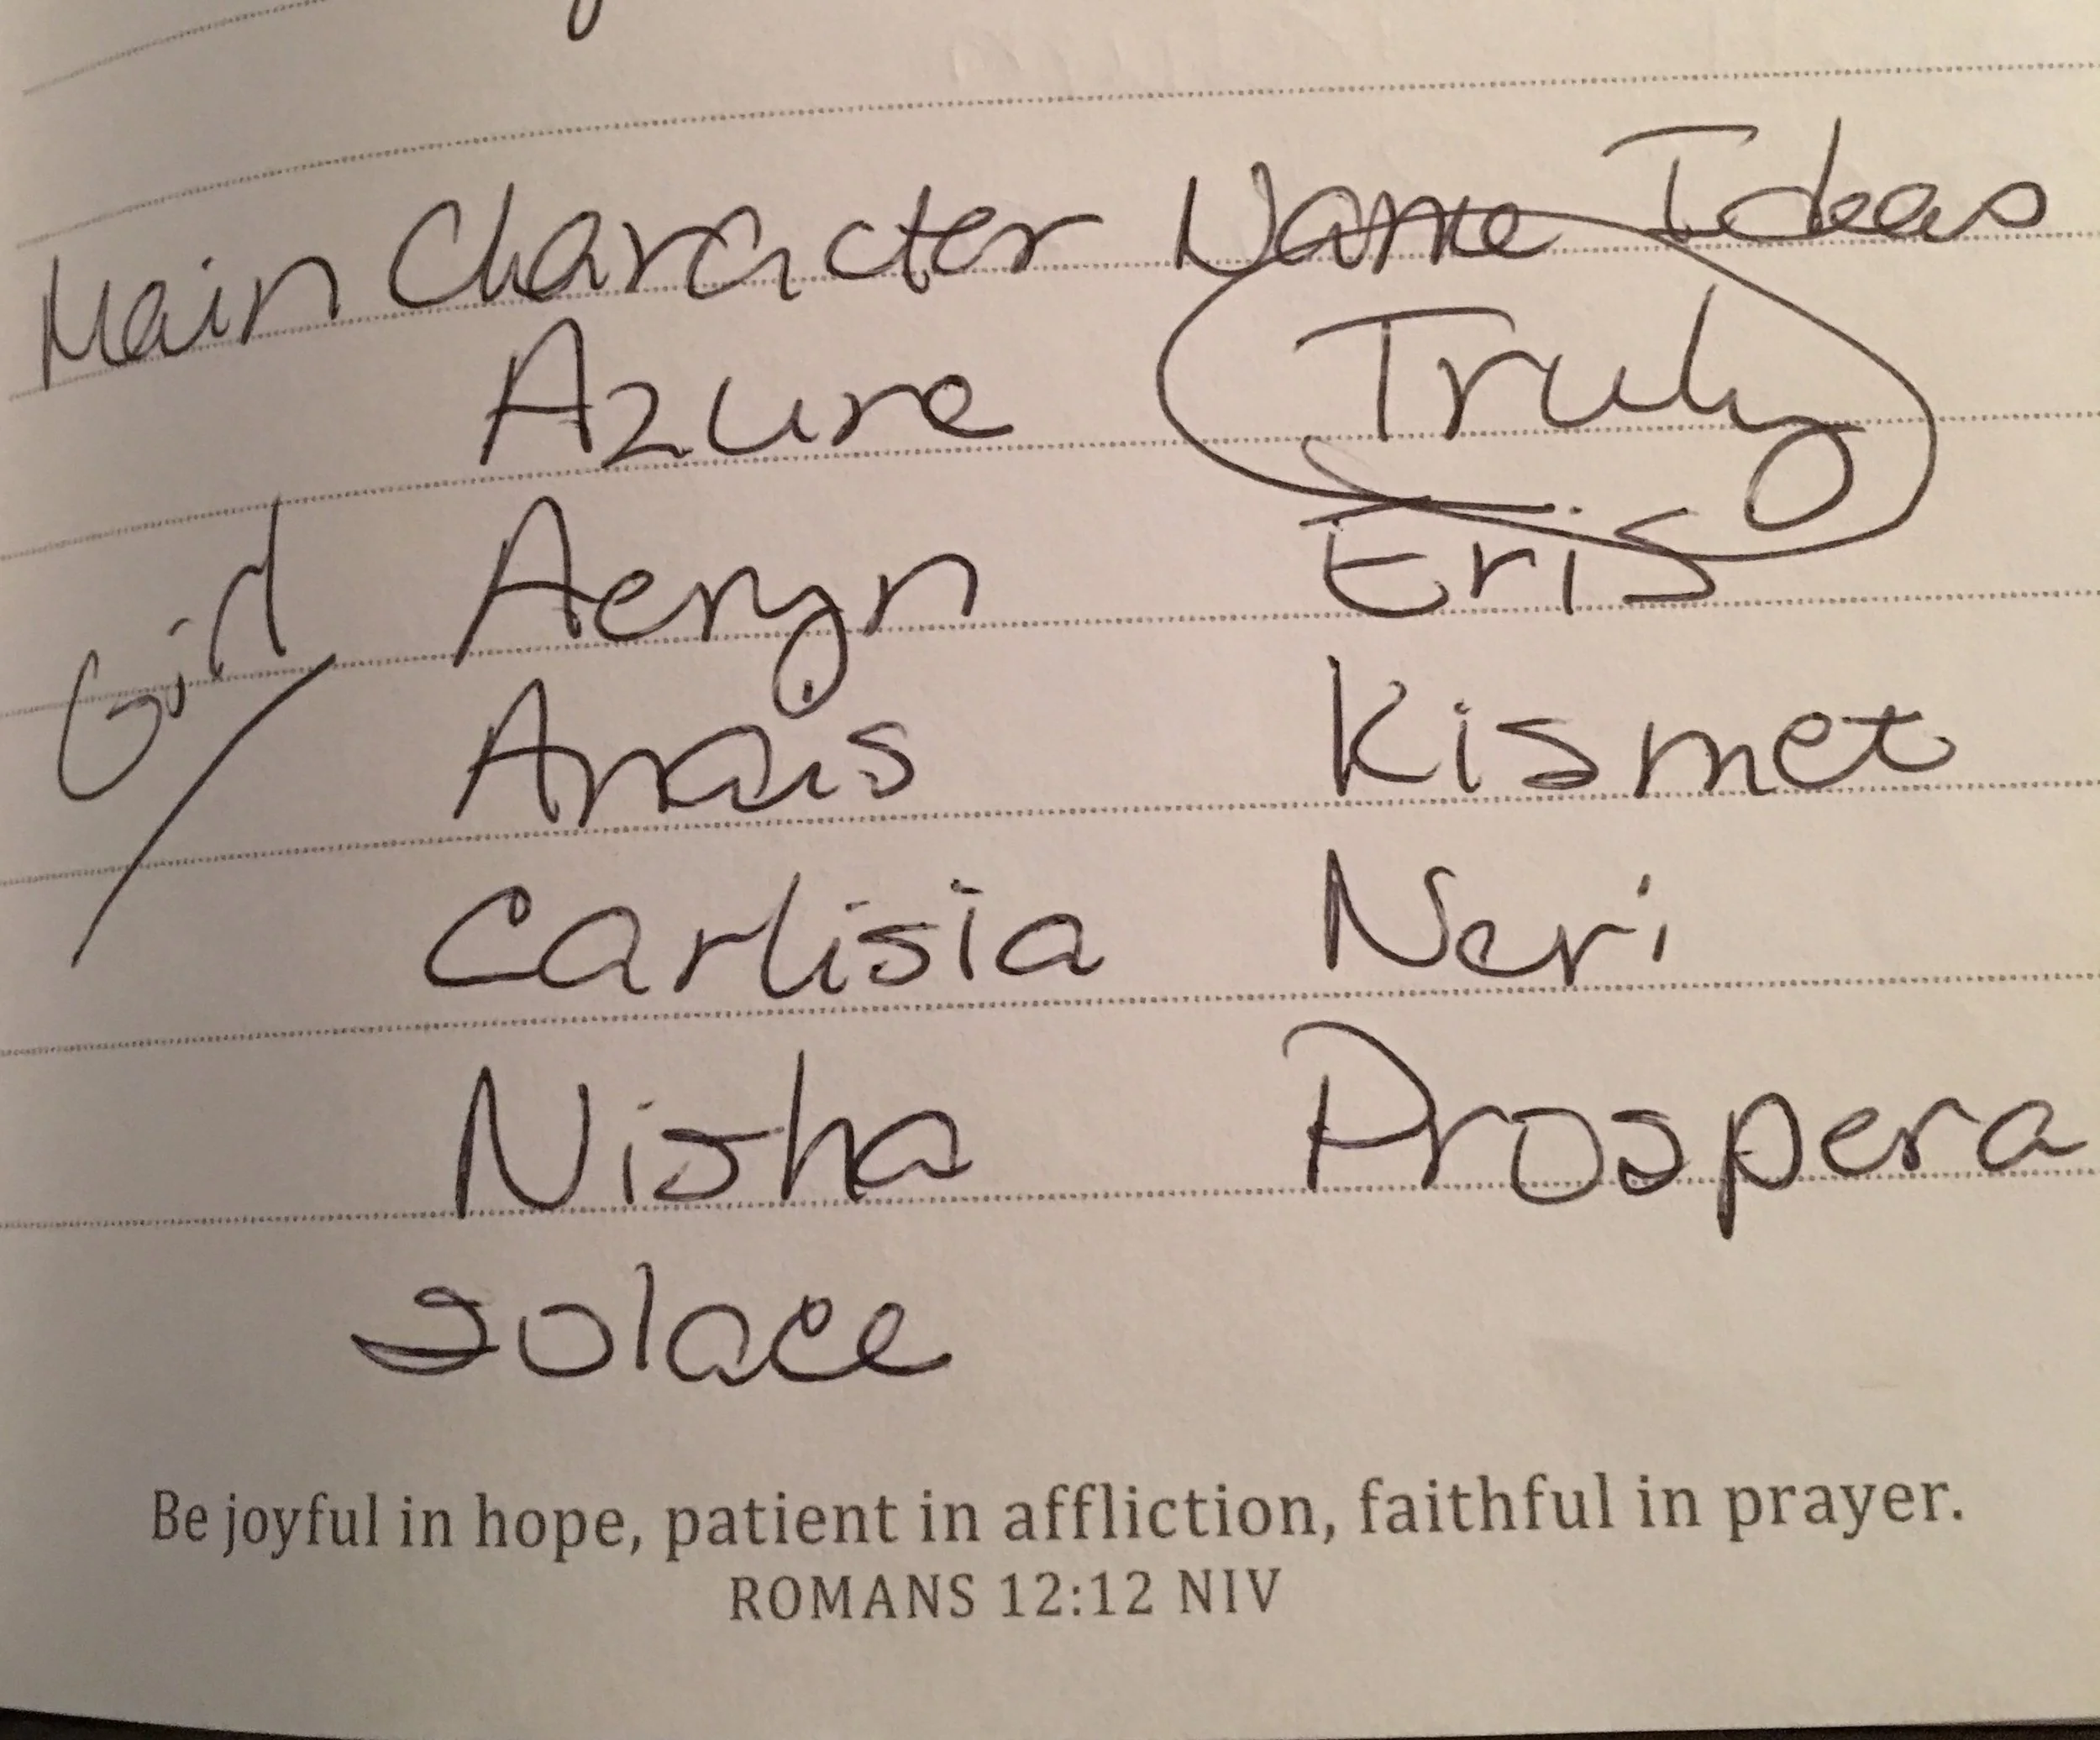 Main Character Name Ideas
Azure Truly
Girl Aeryn Eris
Anais Kismet
Carlisia Neri
Nisha Prospera
Solace
Be joyful in hope, patient in affliction, faithful in prayer.
ROMANS 12:12 NIV